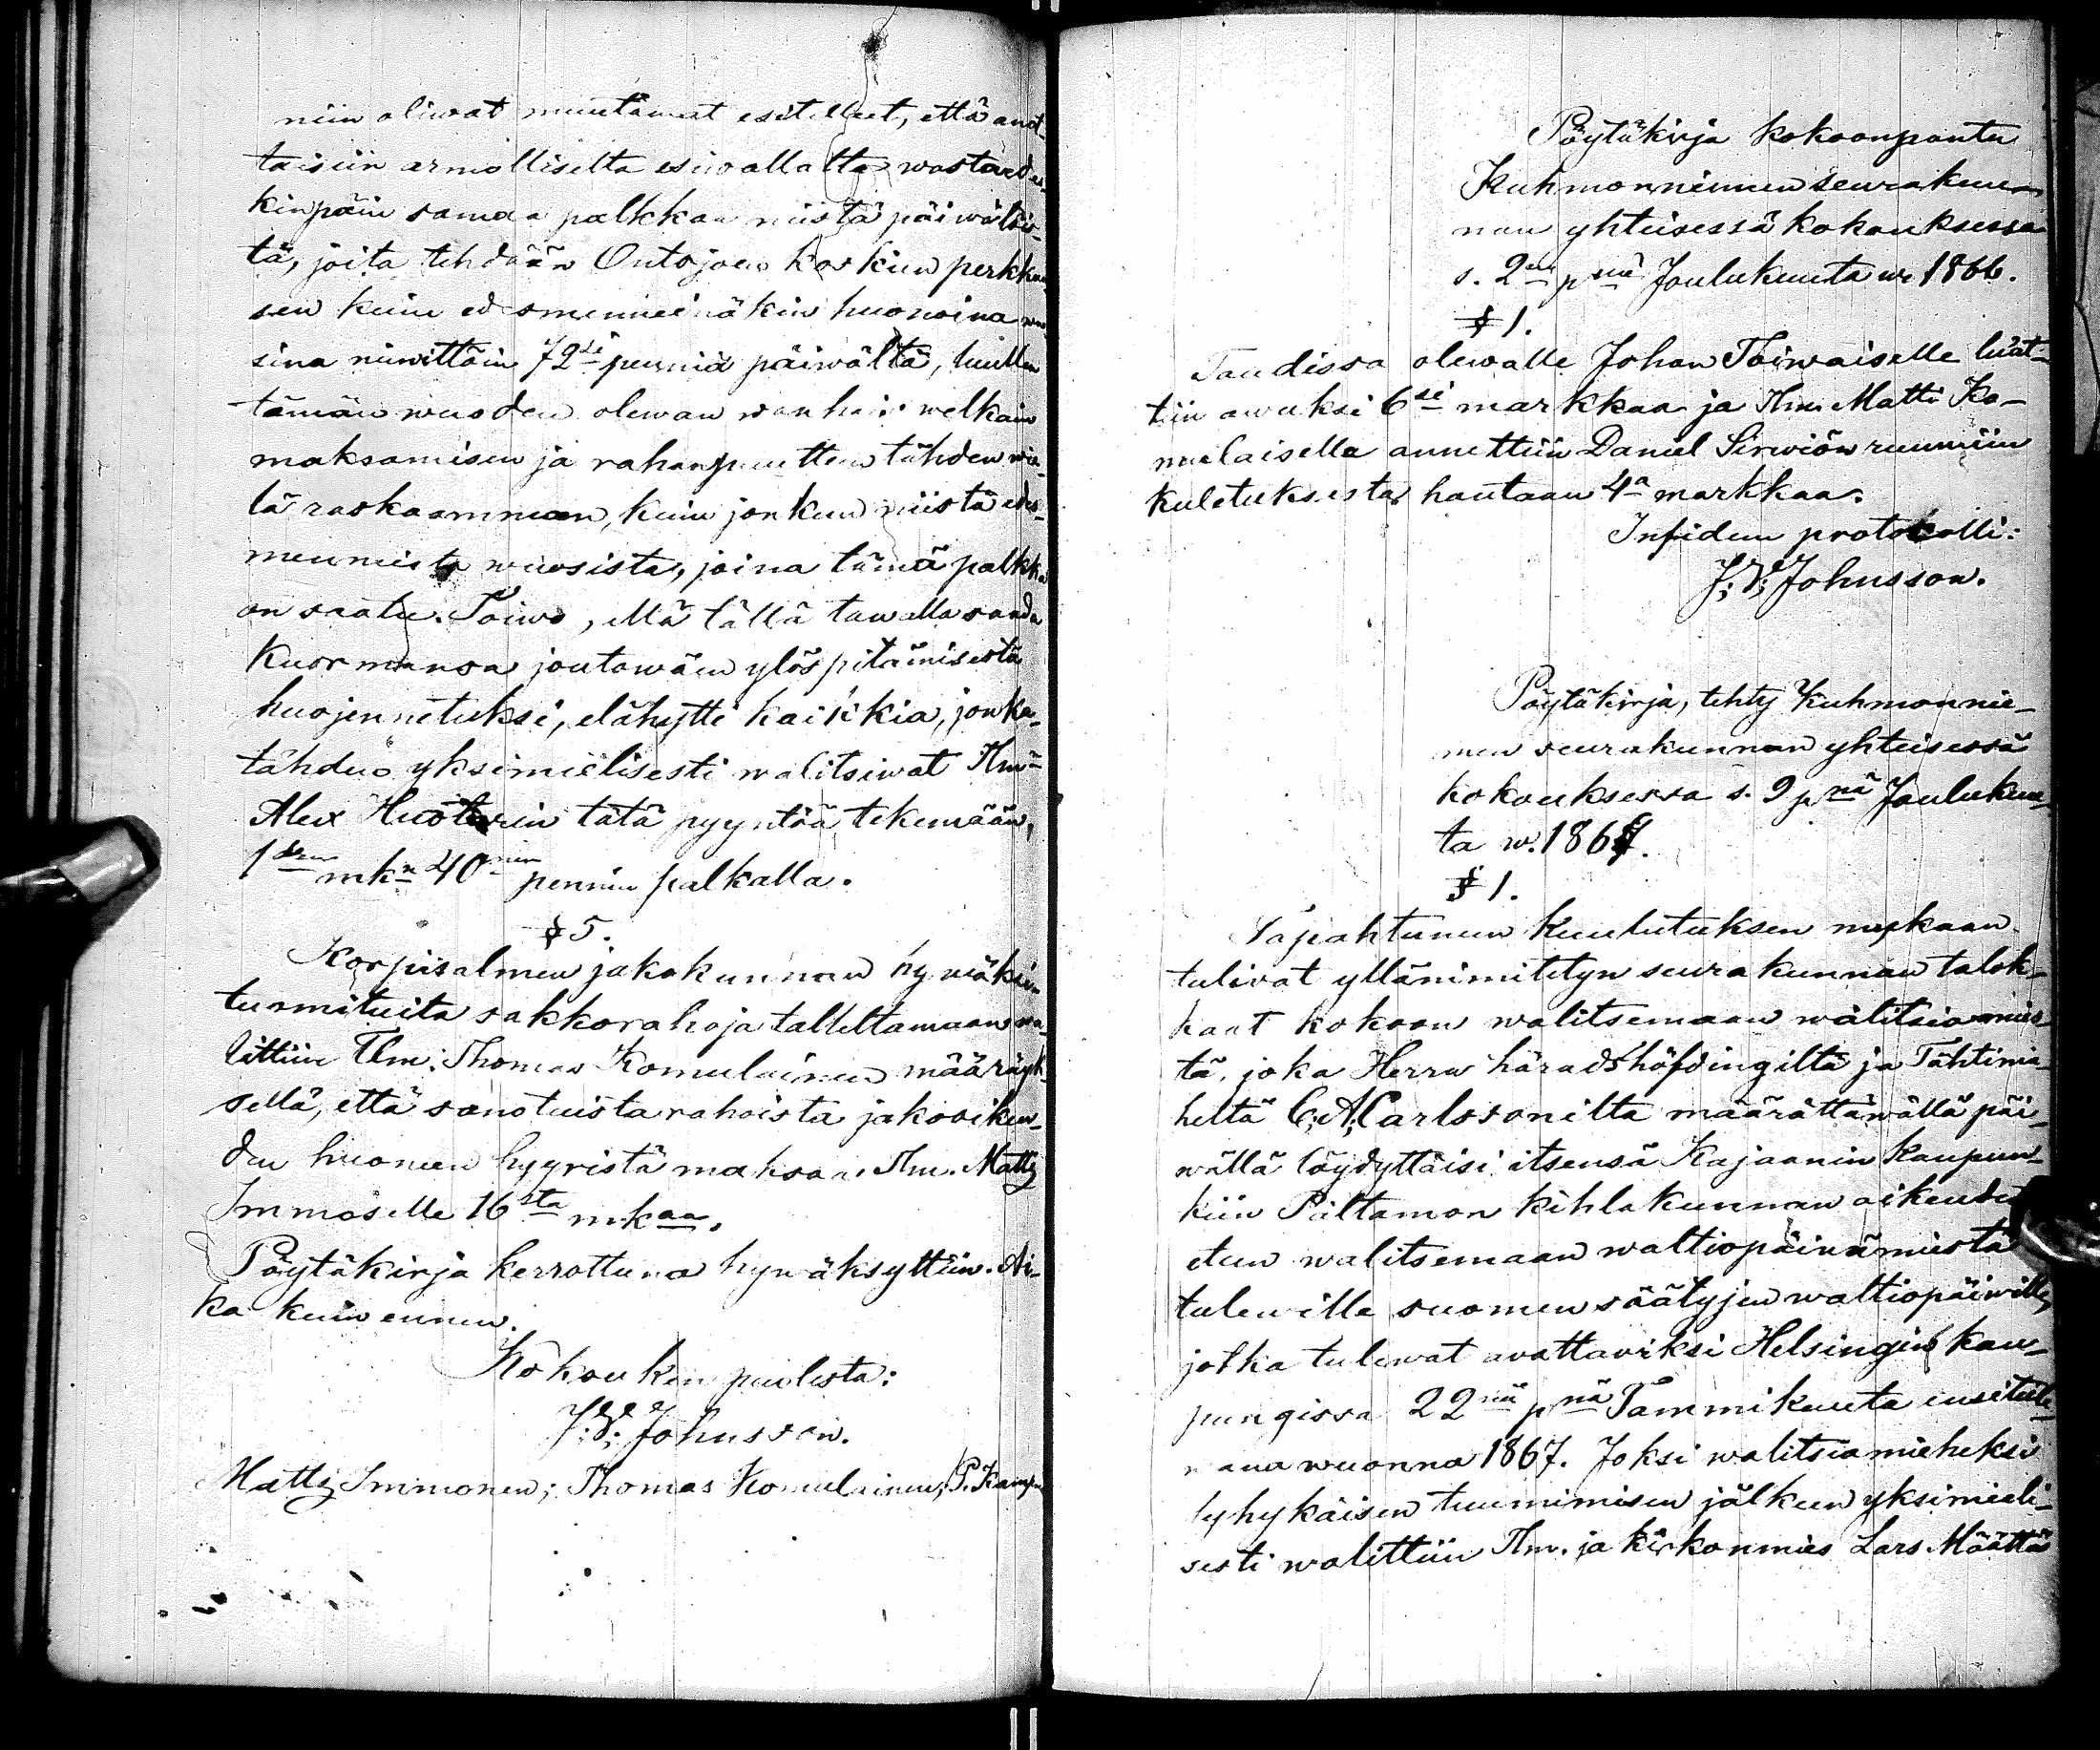 niin oliwat muutamat esitelleet, että anot-
taisiin armolliselta esiwallalta wastaede-
kinpäin samaa palkkaa niistä päiwätöis-
tä, joita tehdään Ontojoen koskien perkkau-
sen kuin edesmenneinäkin huonoina wuo-
sina nimittäin 72si penniä päiwältä, luullen
tämän wuoden olewan wanhain welkain
maksamisen ja rahanpuutteen tähden wie-
lä raskaamman, kuin jonkun niistä edes-
menneista wuosista, joina tämä palkka
on saatu. Toiwo, että tällä tawalla saada
kuormansa joutowäen ylöspitämisestä
huojennetuksi, elähytti kaikkia, jonka-
tähden yksimielisesti walitsiwat Tlm-
Alex Huotarin tätä pyyntöä tekemään,
1den mkn 40nen pennin palkalla.
§ 5.
Korpisalmen jakokunnan hywäksi
tuomituita sakkorahoja talteltamaan wa-
littiin Tlm: Thomas Komulainen määräyk-
sellä, että sanotuista rahoista jakooikeu-
den huoneen hyyristä maksaa Tlm. Matts
Immoselle 16sta mkaa.
Pöytäkirja kerrottuna hywäksyttiin. Ai-
ka kuin ennen.
Kokouksen puolesta:
J. V. Johnsson.
Matts Immonen; Thomas Komulainen; P. Kamp
Pöytäkirja kokoonpantu
Kuhmonniemen seurakun-
nan yhteisessä kokouksessa
s. 2na pnä Joulukuuta w. 1866.
§ 1.
Taudissa olewalle Johan Toiwaiselle luwat-
tiin awuksi 6si markkaa ja Tlm. Matti Ko-
mulaisella annettiin Daniel Sirwiön ruumiin
kuletuksesta hautaan 4a markkaa.
In fidem protokolli:
J: V: Johnsson.
Pöytäkirja, tehty Kuhmonnie-
men seurakunnan yhteisessä
kokouksessa s. 9 pnä Jouluku-
ta w. 1867.
§ 1.
Tapahtuneen kuulutuksen mukaan
tuliwat yllänimitetyn seurakunnan talok-
kaat kokoon walitsemaan walitsiamies-
tä, joka Herra häradshöfdingiltä ja Tähtimie-
heltä C: A: Carlssonilta määrättäwällä päi-
wällä löydyttäisi itsensä Kajaanin kaupun-
kiin Paltamon kihlakunnan oikeuden
eteen walitsemaan waltiopäiwämiestä
tulewille suomen säätyjen waltiopäiwille,
jotka tulewat awattawiksi Helsingin kau-
pungissa 22na pnä Tammikuuta ensitule-
wana wuonna 1867. Joksi walitsiamieheksi
lyhykäisen tuumimisen jälkeen yksimieli-
sesti walittiin Tlm. ja kirkonmies Lars Määttä